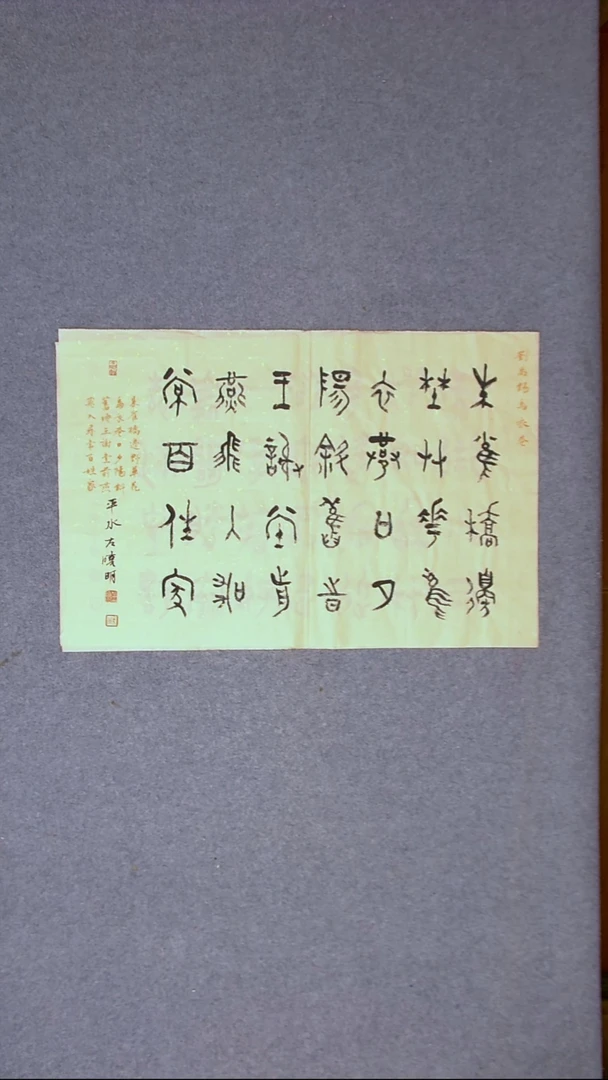 劉禹錫烏衣巷
朱雀橋邊
埜艸華烏
衣巷日夕
陽斜舊旹
王謝堂前
燕飛入尋
常百姓家
朱雀橋邊野草花
烏衣巷日夕陽斜
舊時王謝堂前燕
飛入尋常百姓家
平水左明